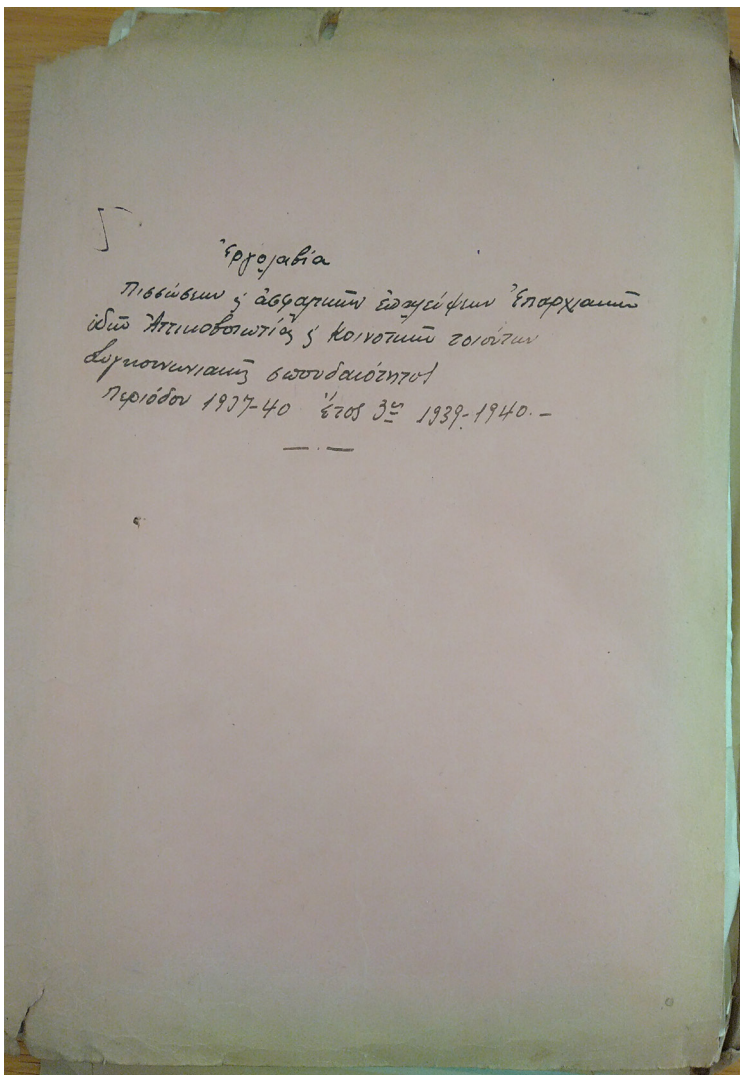 Ἐργολαβία
Πισσώσεων & ἀσφαλτικῶν ἐπαλείψεων Ἐπαρχιακῶν
ὁδῶν Ἀττικοβοιωτίας & Κοινοτικῶν τοιούτων
Συγκοινωνιακῆς σπουδαιότητος
Περιόδου 1937-40 Ἔτος 3ον 1939-1940.-